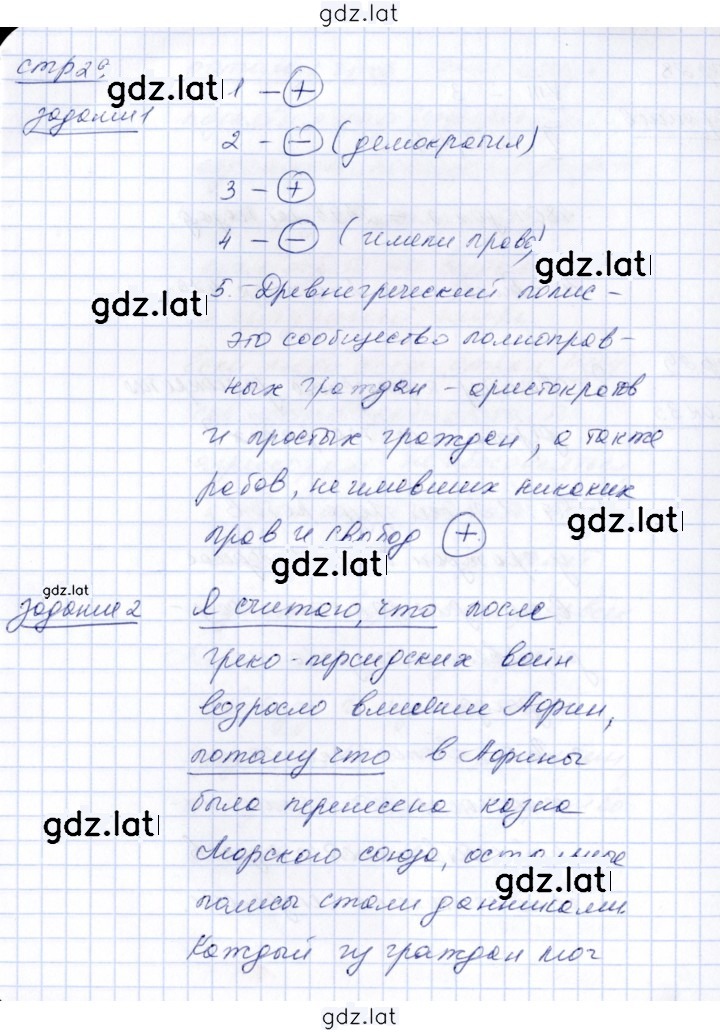 gdz.lat
стр 29
gdz.lat 1 – +
задание 1
2 – – (демократия)
3 – +
4 – – (имели права)
gdz.lat
gdz.lat 5. – Древнегреческий полис –
это сообщество полноправ –
ных граждан – аристократов
и простых граждан, а также
рабов, не имевших никаких
gdz.lat
прав и свобод +
gdz.lat
gdz.lat
задание 2 Я считаю, что после
греко-персидских войн
возросло влияние Афин,
потому что в Афины
была перенесена казна
gdz.lat
Морского союза, остальные
gdz.lat
полисы стали данниками.
Каждый из граждан мог
gdz.lat